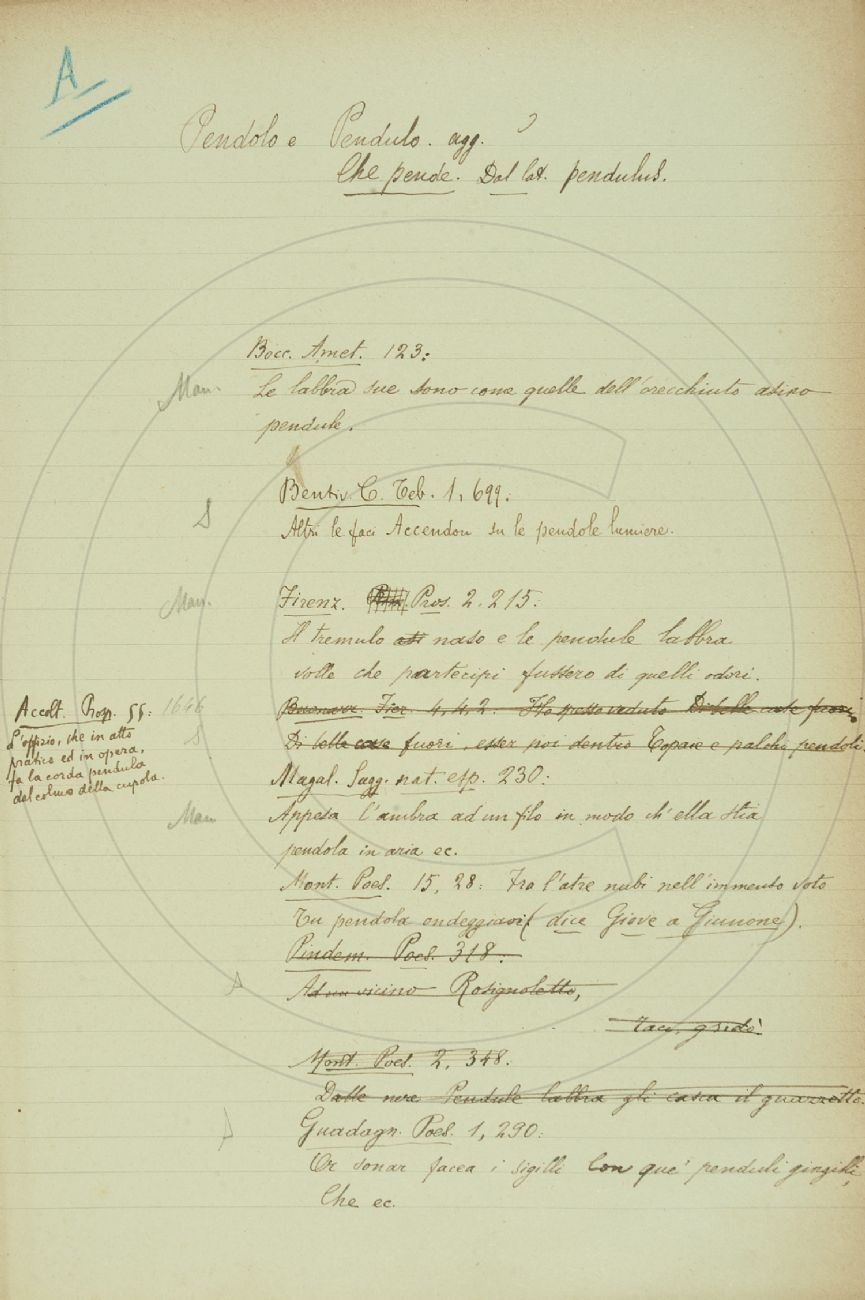 A
Pendolo e Pendulo. agg.
Che pende. Dal lat. pendulus.
Bocc. Amet. 123:
Man.
Le labbra sue sono come quelle dell'orecchiuto asino
pendule.
Bentiv. C. Teb. 1, 699:
Altri le faci Accendon su le pendole lumiere.
Man.
Firenz. Pros. 2. 215:
Il tremulo naso e le pendule labbra
volle che partecipi fussero di quelli odori.
Accolt. Prosp. 55: 1646
L'offizio, che in atto
pratico ed in opera,
fa la corda pendula
del colmo della cupola.
Buonarr. Fier. 4, 4, 2. Ho spesso veduto Di belle case fuori,
Di belle case fuori, esser poi dentro Topaie e palchi pendoli.
Magal. Sagg. nat. esp. 230:
Man
Appesa l'ambra ad un filo in modo ch'ella stia
pendola in aria ec.
Mont. Poes. 15, 28: Fra l'atre nubi nell'immenso voto
Tu pendola ondeggiavi (dice Giove a Giunone).
Pindem. Poes. 318:
Ad un vicino Rosignoletto,
Taci, gridò
Mont. Poes. 2, 348.
Dalle nere Pendule labbra gli casca il guazzetto.
Guadagn. Poes. 1, 290:
Or sonar facea i sigilli Con que' penduli gingilli,
Che ec.